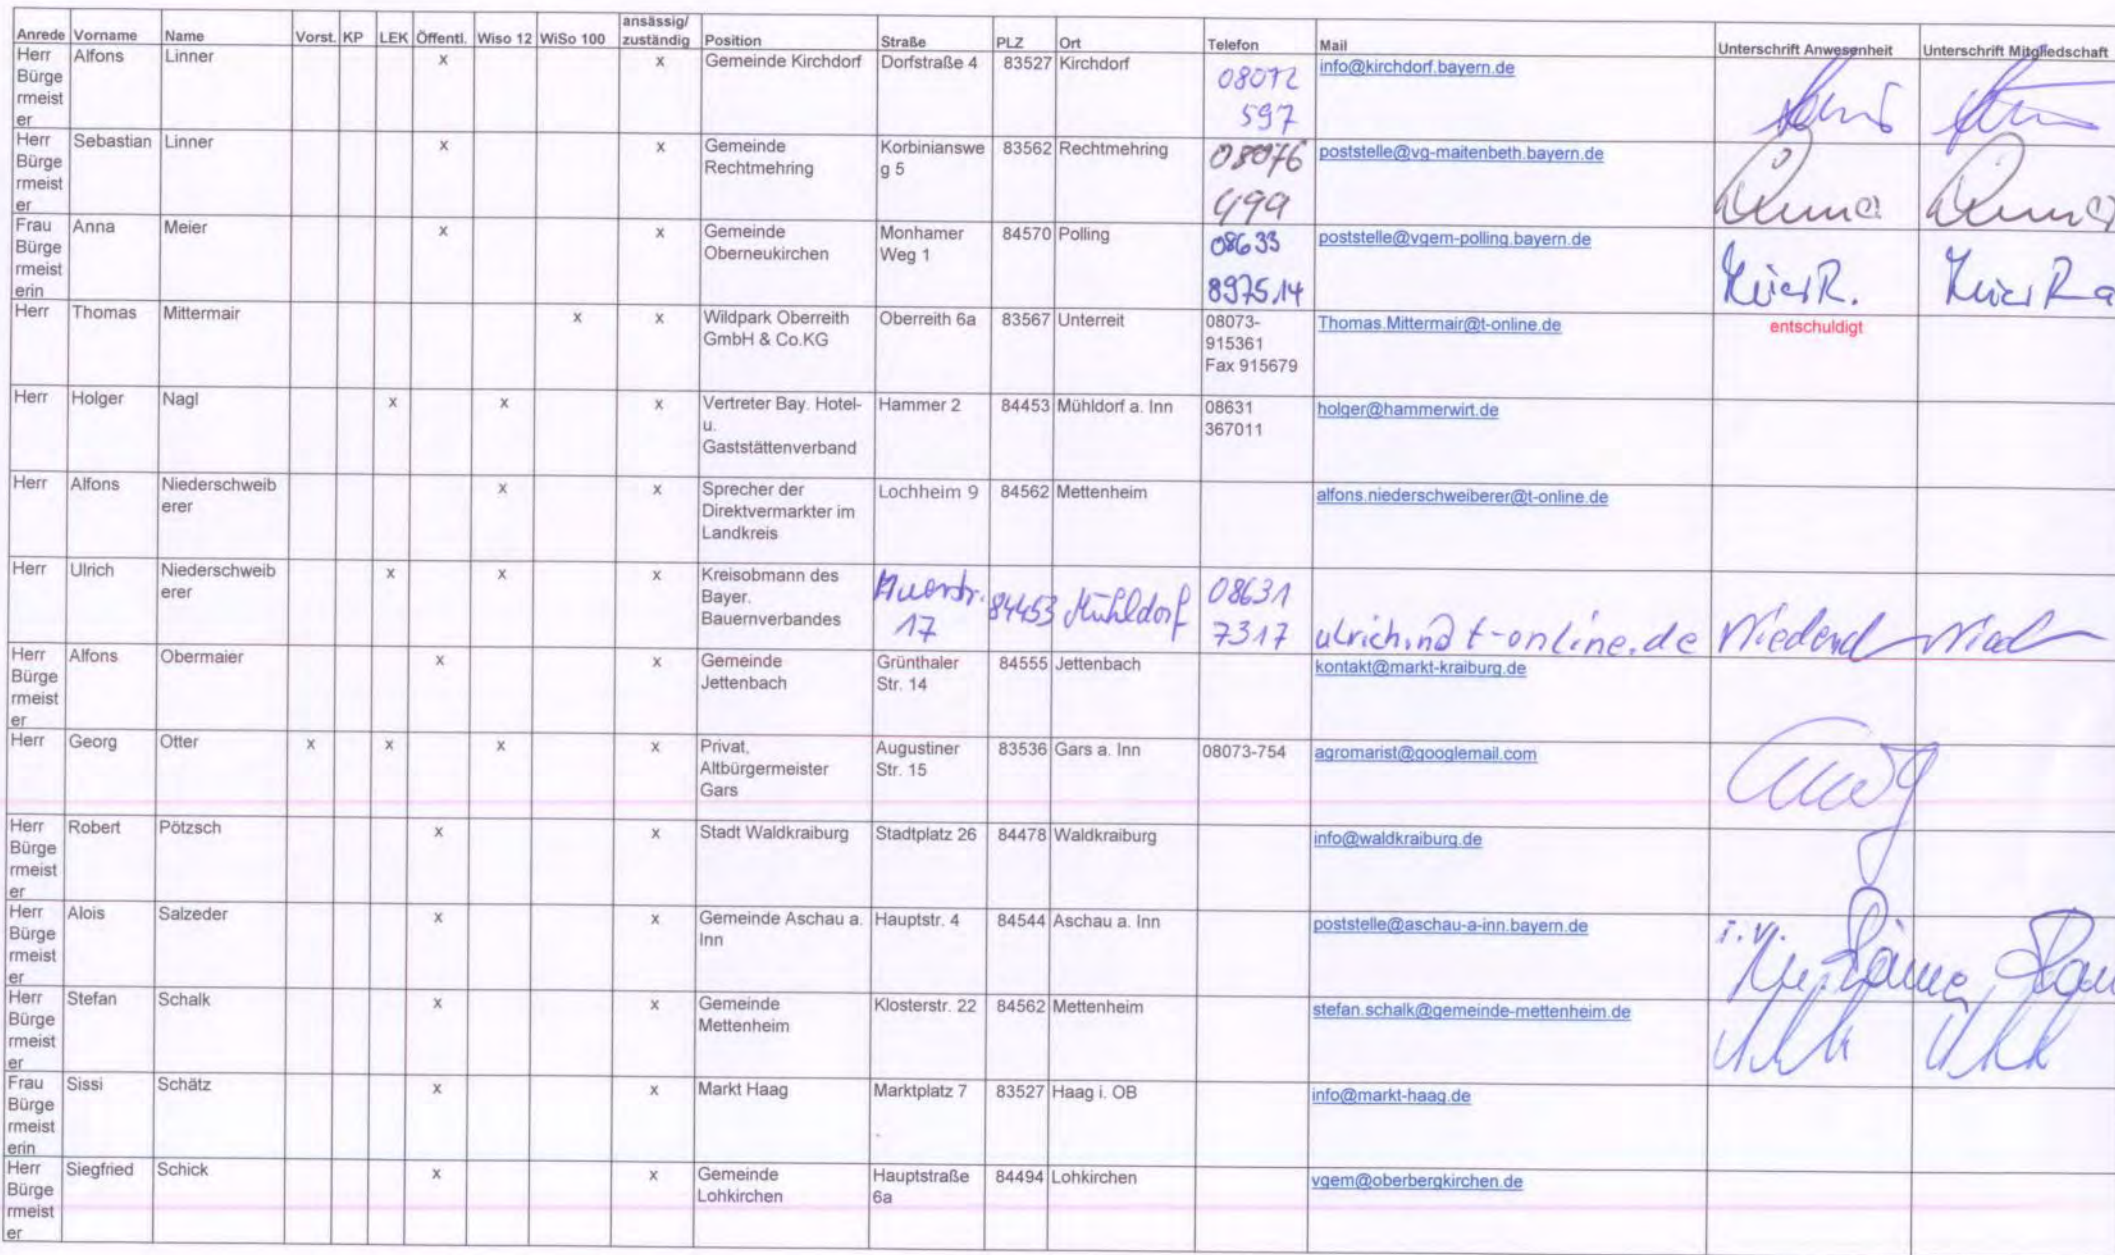 Anrede Vorname Name Vorst. KP LEK Öffentl. Wiso 12 WiSo 100 ansässig/ zuständig Position Straße PLZ Ort Telefon Mail Unterschrift Anwesenheit Unterschrift Mitgliedschaft
Herr Bürge rmeist er Alfons Linner x x Gemeinde Kirchdorf Dorfstraße 4 83527 Kirchdorf 08072 597 info@kirchdorf.bayern.de
Herr Bürge rmeist er Sebastian Linner x x Gemeinde Rechtmehring Korbinianswe g 5 83562 Rechtmehring 08076 499 poststelle@vg-maitenbeth.bayern.de
Frau Bürge rmeist erin Anna Meier x x Gemeinde Oberneukirchen Monhamer Weg 1 84570 Polling 08633 897514 poststelle@vgem-polling.bayern.de
Herr Thomas Mittermair x x Wildpark Oberreith GmbH & Co.KG Oberreith 6a 83567 Unterreit 08073- 915361 Fax 915679 Thomas.Mittermair@t-online.de entschuldigt
Herr Holger Nagl x x x Vertreter Bay. Hotel- u. Gaststättenverband Hammer 2 84453 Mühldorf a. Inn 08631 367011 holger@hammerwirt.de
Herr Alfons Niederschweib erer x x Sprecher der Direktvermarkter im Landkreis Lochheim 9 84562 Mettenheim alfons.niederschweiberer@t-online.de
Herr Ulrich Niederschweib erer x x x Kreisobmann des Bayer. Bauernverbandes 17 84453 Mühldorf 08631 7317 ulrich.n@t-online.de
Herr Bürge rmeist er Alfons Obermaier x x Gemeinde Jettenbach Grünthaler Str. 14 84555 Jettenbach kontakt@markt-kraiburg.de
Herr Georg Otter x x x x Privat, Altbürgermeister Gars Augustiner Str. 15 83536 Gars a. Inn 08073-754 agromarist@googlemail.com
Herr Bürge rmeist er Robert Pötzsch x x Stadt Waldkraiburg Stadtplatz 26 84478 Waldkraiburg info@waldkraiburg.de
Herr Bürge rmeist er Alois Salzeder x x Gemeinde Aschau a. Inn Hauptstr. 4 84544 Aschau a. Inn poststelle@aschau-a-inn.bayern.de i.V.
Herr Bürge rmeist er Stefan Schalk x x Gemeinde Mettenheim Klosterstr. 22 84562 Mettenheim stefan.schalk@gemeinde-mettenheim.de
Frau Bürge rmeist erin Sissi Schätz x x Markt Haag Marktplatz 7 83527 Haag i. OB info@markt-haag.de
Herr Bürge rmeist er Siegfried Schick x x Gemeinde Lohkirchen Hauptstraße 6a 84494 Lohkirchen vgem@oberbergkirchen.de